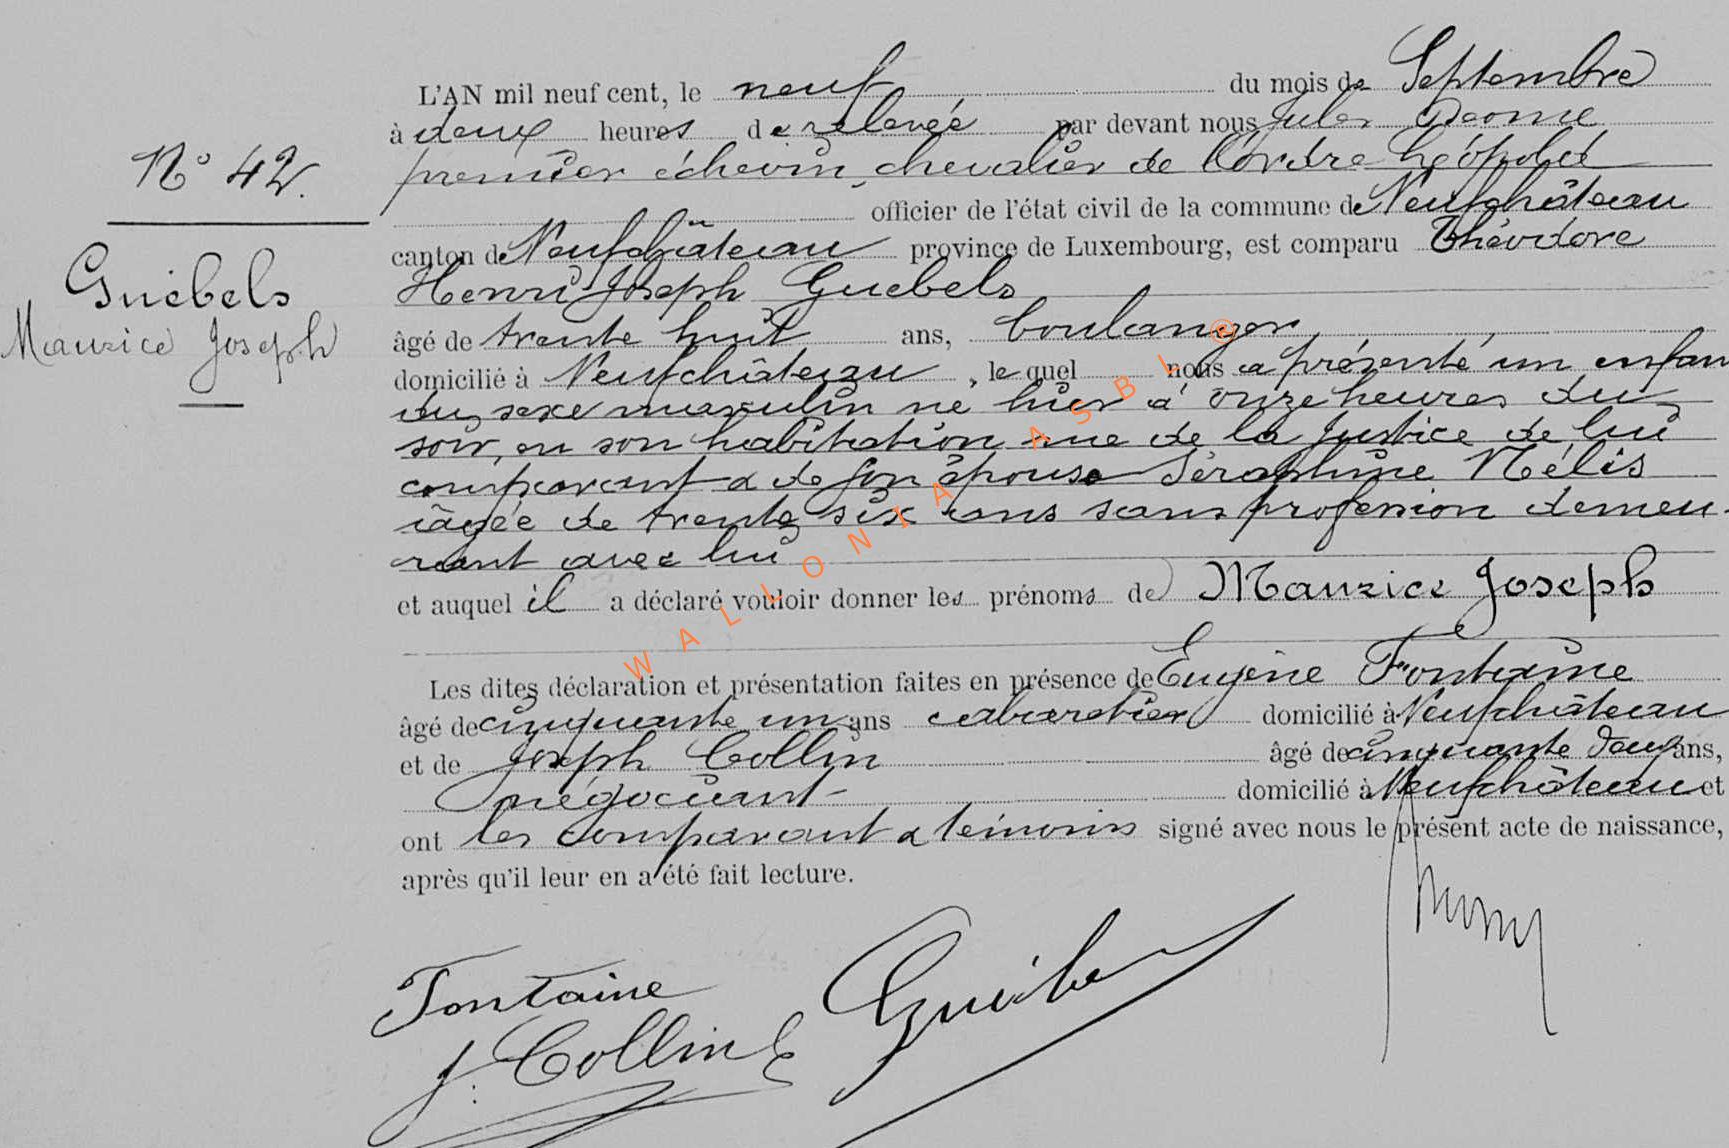 N° 42.
Guebels
Maurice Joseph
L'AN mil neuf cent, le neuf du mois de Septembre
à deux heures de relevée par devant nous Jules
premier échevin, chevalier de l'ordre Léopold
officier de l'état civil de la commune de Neufchâteau
canton de Neufchâteau province de Luxembourg, est comparu Théodore
Henri Joseph Guebels
âgé de trente huit ans, boulanger,
domicilié à Neufchâteau, le quel nous a présenté un enfan
du sexe masculin né hier à onze heures du
soir, en son habitation rue de la Justice de lui
comparant & de son épouse Séraphine Mélis
âgée de trente six ans sans profession demeu-
rant avec lui
et auquel il a déclaré vouloir donner les prénoms de Maurice Joseph
Les dites déclaration et présentation faites en présence de Eugène Fontaine
âgé de cinquante un ans cabaretier domicilié à Neufchâteau
et de Joseph Collin âgé de cinquante deux ans,
négociant domicilié à Neufchâteau et
ont les comparant & témoins signé avec nous le présent acte de naissance,
après qu'il leur en a été fait lecture.
Fontaine
J. Collin
WALLONIA ASBL ®